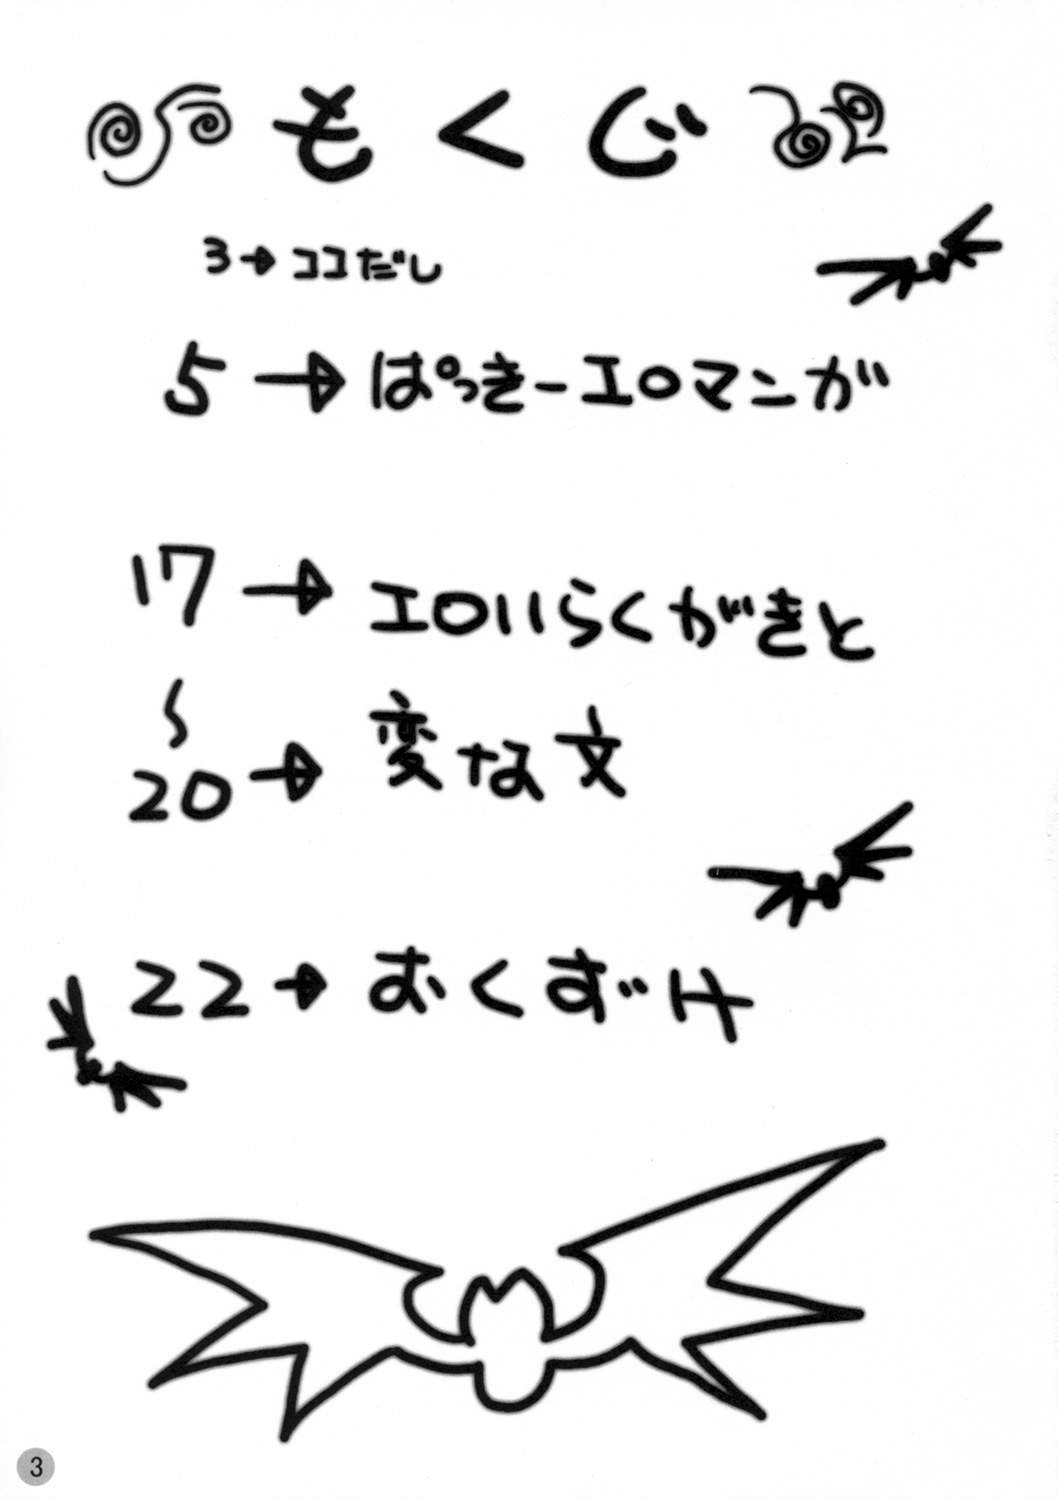 もくじ
3→ココだし
5→ぱっきーエロマンガ
17→エロいらくがきと
～
20→変な文
22→おくづけ
3